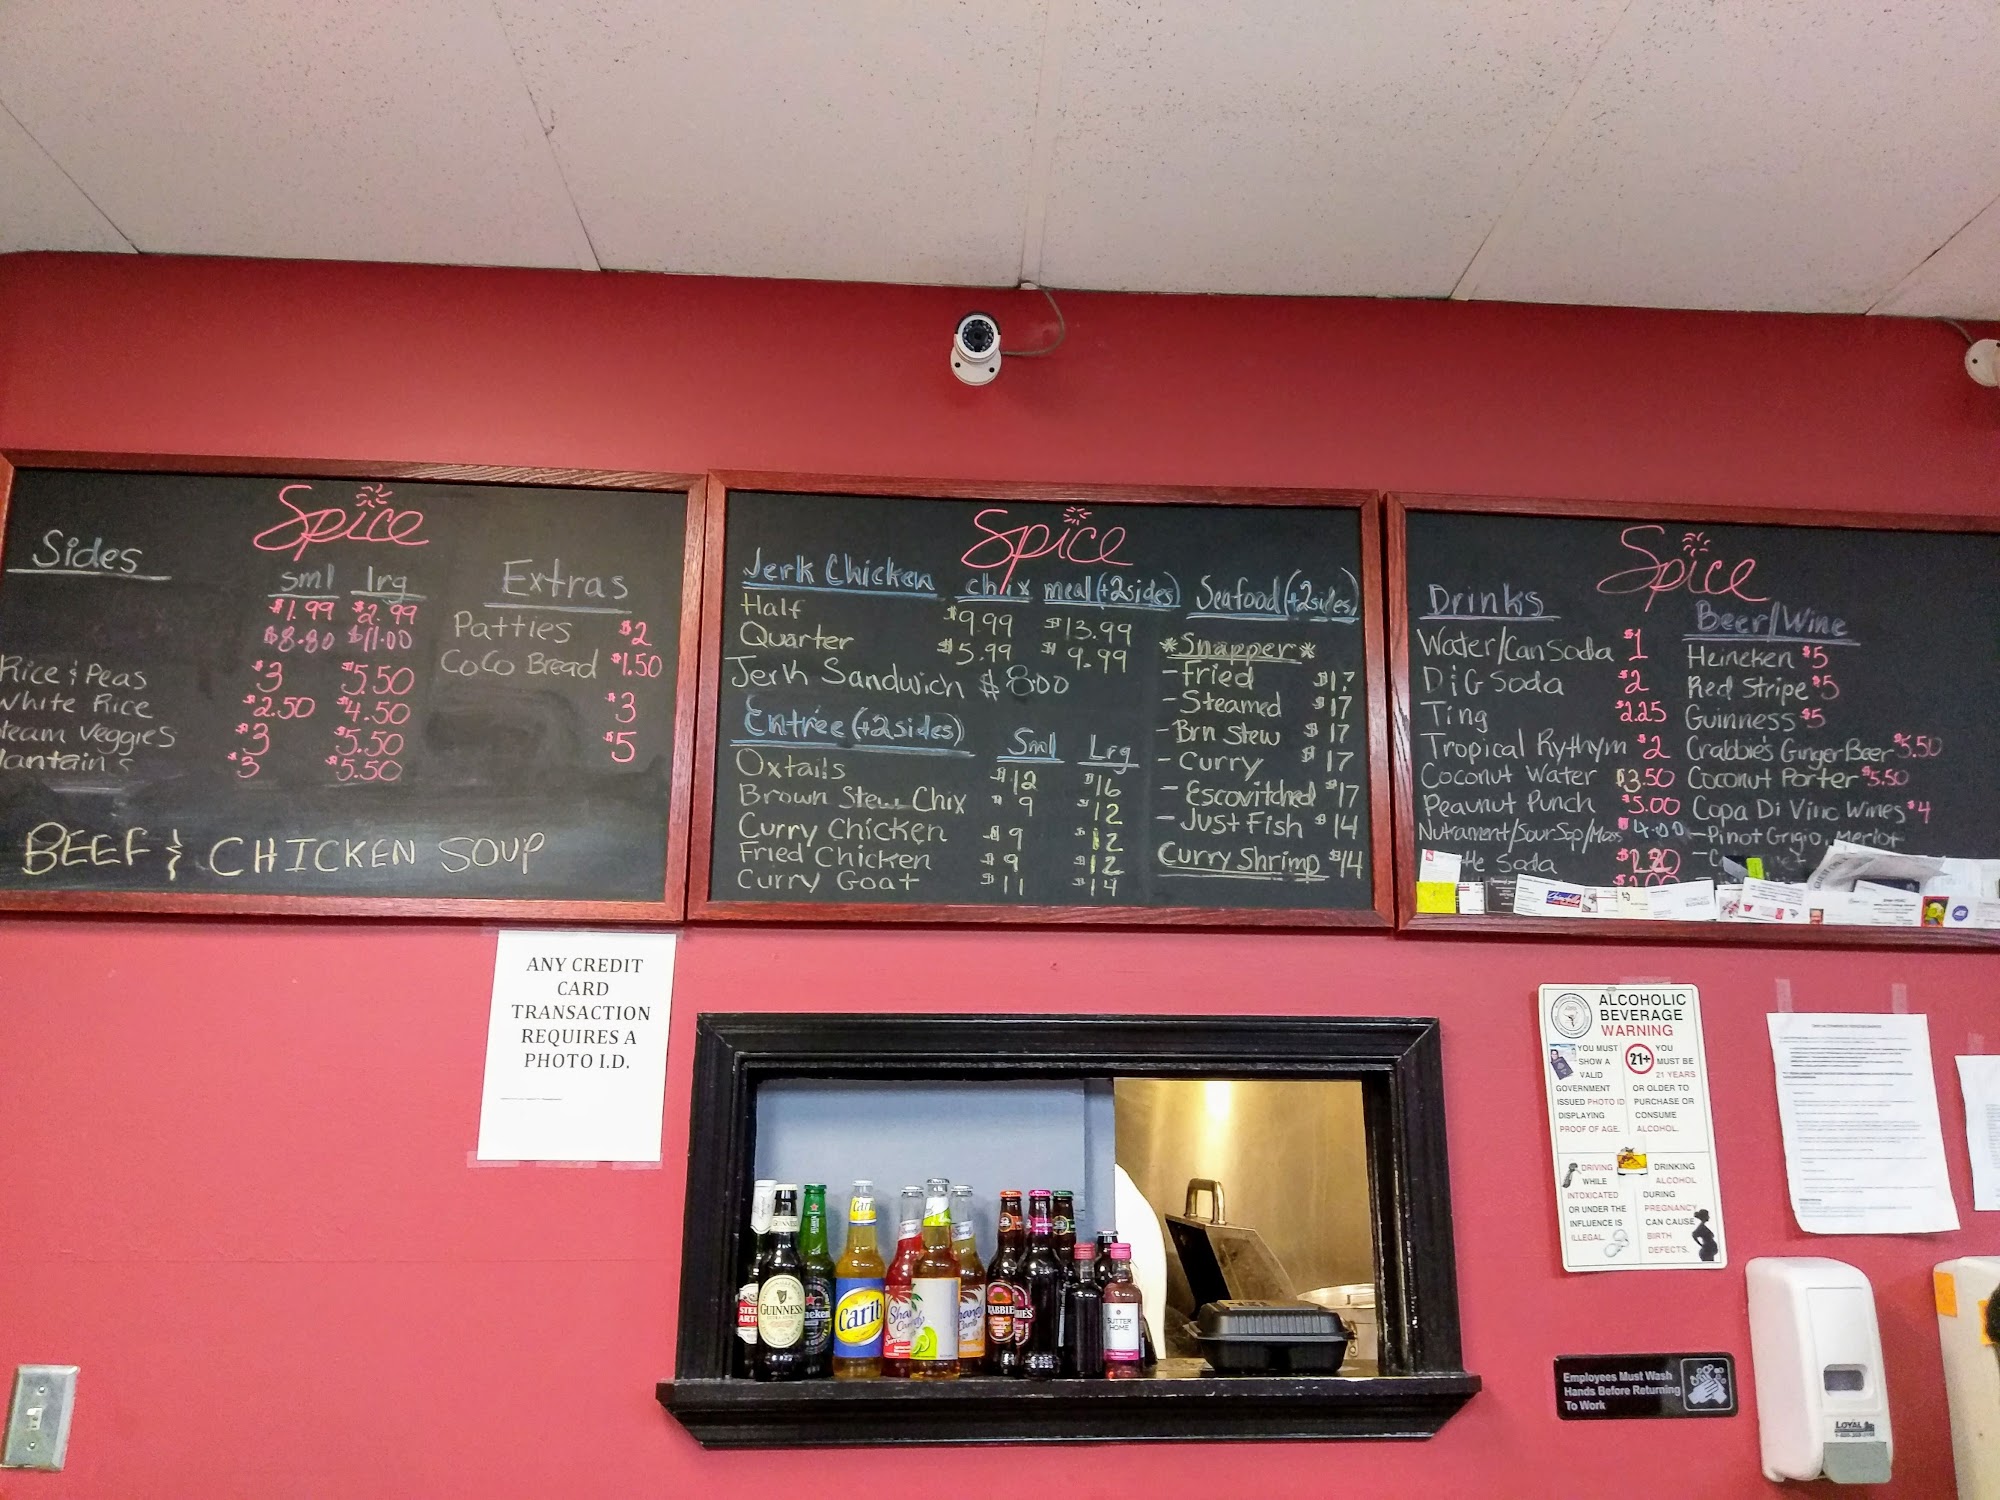 Spice
Sides
sml lrg
$1.99 $2.99
$8.80 $11.00
Rice & Peas $3 $5.50
White Rice $2.50 $4.50
team Veggies $3 $5.50
lantains $3 $5.50
Extras
Patties $2
CoCo Bread $1.50
$3
$5
BEEF & CHICKEN SOUP
Spice
Jerk Chicken chix meal (+2sides)
Half $9.99 $13.99
Quarter $5.99 $9.99
Jerk Sandwich $8.00
Entrée (+2sides) Sml Lrg
Oxtails $12 $16
Brown Stew Chix $9 $12
Curry Chicken $9 $12
Fried Chicken $9 $12
Curry Goat $11 $14
Seafood (+2sides)
*Snapper*
- Fried $17
- Steamed $17
- Brn Stew $17
- Curry $17
- Escovitched $17
- Just Fish $14
Curry Shrimp $14
Spice
Drinks
Water/Can Soda $1
DiG Soda $2
Ting $2.25
Tropical Rythym $2
Coconut Water $3.50
Peaunut Punch $5.00
Nutrament/Sour Sop/Mass $4.00
Soda
Beer/Wine
Heineken $5
Red Stripe $5
Guinness $5
Crabbie's Ginger Beer $5.50
Coconut Porter $5.50
Copa Di Vino Wines $4
- Pinot Grigio, Merlot
ANY CREDIT
CARD
TRANSACTION
REQUIRES A
PHOTO I.D.
ALCOHOLIC
BEVERAGE
WARNING
YOU MUST
SHOW A
VALID
GOVERNMENT
ISSUED PHOTO ID
DISPLAYING
PROOF OF AGE.
21+
YOU
MUST BE
21 YEARS
OR OLDER TO
PURCHASE OR
CONSUME
ALCOHOL.
DRIVING
WHILE
INTOXICATED
OR UNDER THE
INFLUENCE IS
ILLEGAL.
DRINKING
ALCOHOL
DURING
PREGNANCY
CAN CAUSE
BIRTH
DEFECTS.
GUINNESS
Carib
Carib
SUTTER
HOME
Employees Must Wash
Hands Before Returning
To Work
LOYAL